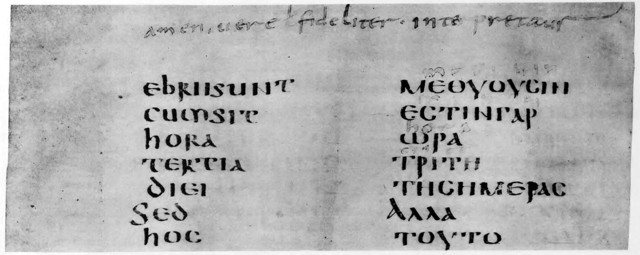 amen. uere l fideliter. inte pretaur
ebriisunt
cumsit
hora
tertia
diei
Sed
hoc
ΜΕΘΥΟΥϹΙΝ
ΕϹΤΙΝΓΑΡ
ΩΡΑ
ΤΡΙΤΗ
ΤΗϹΗΜΕΡΑϹ
ΑΛΛΑ
ΤΟΥΤΟ